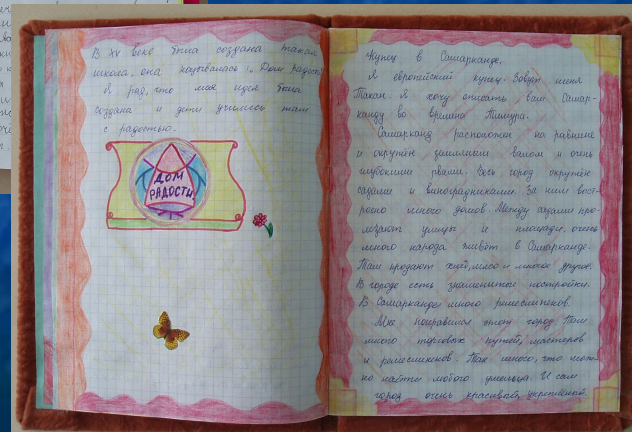 В XV веке была создана такая
школа, она называлась „Дом радости
Я рад, что моя идея была
создана и дети учились там
с радостью.
ДОМ
РАДОСТИ
Купец в Самарканде.
Я европейский купец. Зовут меня
Такан. Я хочу описать вам Самар-
канду во времена Тимура.
Самарканд расположен на равнине
и окружён земляным валом и очень
глубокими рвами. Весь город окружён
садами и виноградниками. За ним выст-
роено много домов. Между садами про-
легают улицы и площади, очень
много народа живёт в Самарканде.
Там продают хлеб, мясо и многое другое.
В городе есть знаменитые постройки.
В Самарканде много ремесленников.
Мне понравился этот город. Там
много торговых путей, мастеров
и ремесленников. Так много, что мож-
но найти любого умельца. И сам
город очень красивый, укреплённый.